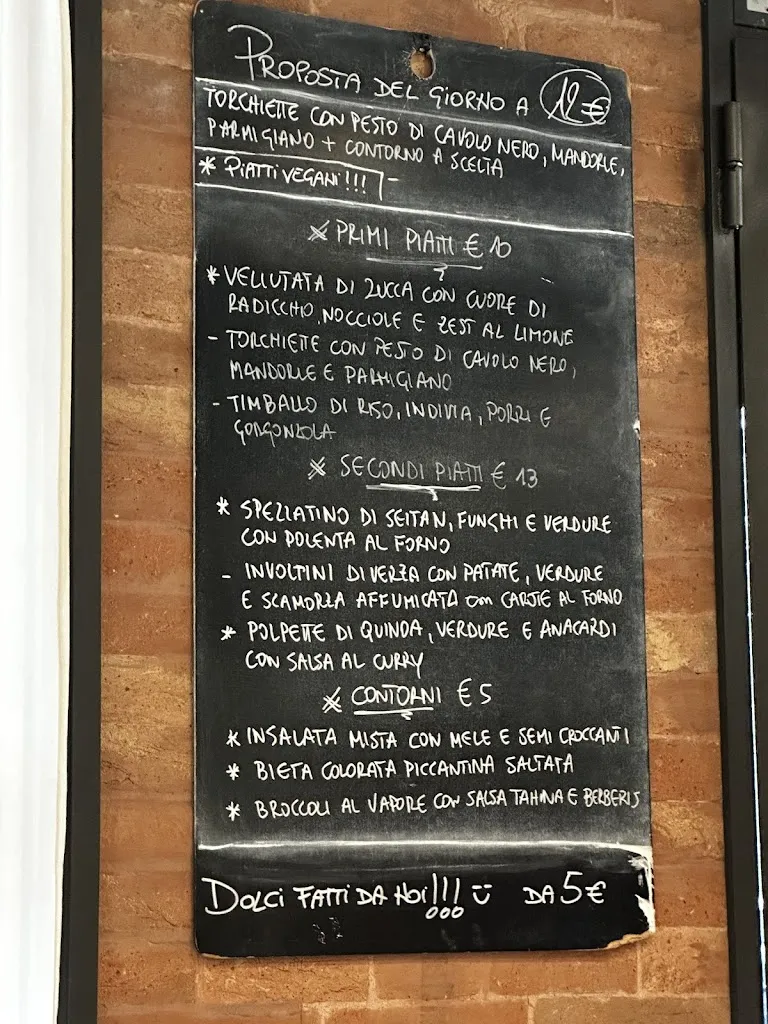 PROPOSTA DEL GIORNO A 12 €
TORCHIETTE CON PESTO DI CAVOLO NERO, MANDORLE,
PARMIGIANO + CONTORNO A SCELTA
* PIATTI VEGANI!!!
* PRIMI PIATTI € 10
* VELLUTATA DI ZUCCA CON CUORE DI
RADICCHIO, NOCCIOLE E ZEST AL LIMONE
- TORCHIETTE CON PESTO DI CAVOLO NERO,
MANDORLE E PARMIGIANO
- TIMBALLO DI RISO, INDIVIA, PORRI E
GORGONZOLA
* SECONDI PIATTI € 13
* SPEZZATINO DI SEITAN, FUNGHI E VERDURE
CON POLENTA AL FORNO
- INVOLTINI DI VERZA CON PATATE, VERDURE
E SCAMORZA AFFUMICATA con CAROTE AL FORNO
* POLPETTE DI QUINOA, VERDURE E ANACARDI
CON SALSA AL CURRY
* CONTORNI € 5
* INSALATA MISTA CON MELE E SEMI CROCCANTI
* BIETA COLORATA PICCANTINA SALTATA
* BROCCOLI AL VAPORE CON SALSA TAHINA E BERBERIS
DOLCI FATTI DA NOI!!! DA 5 €